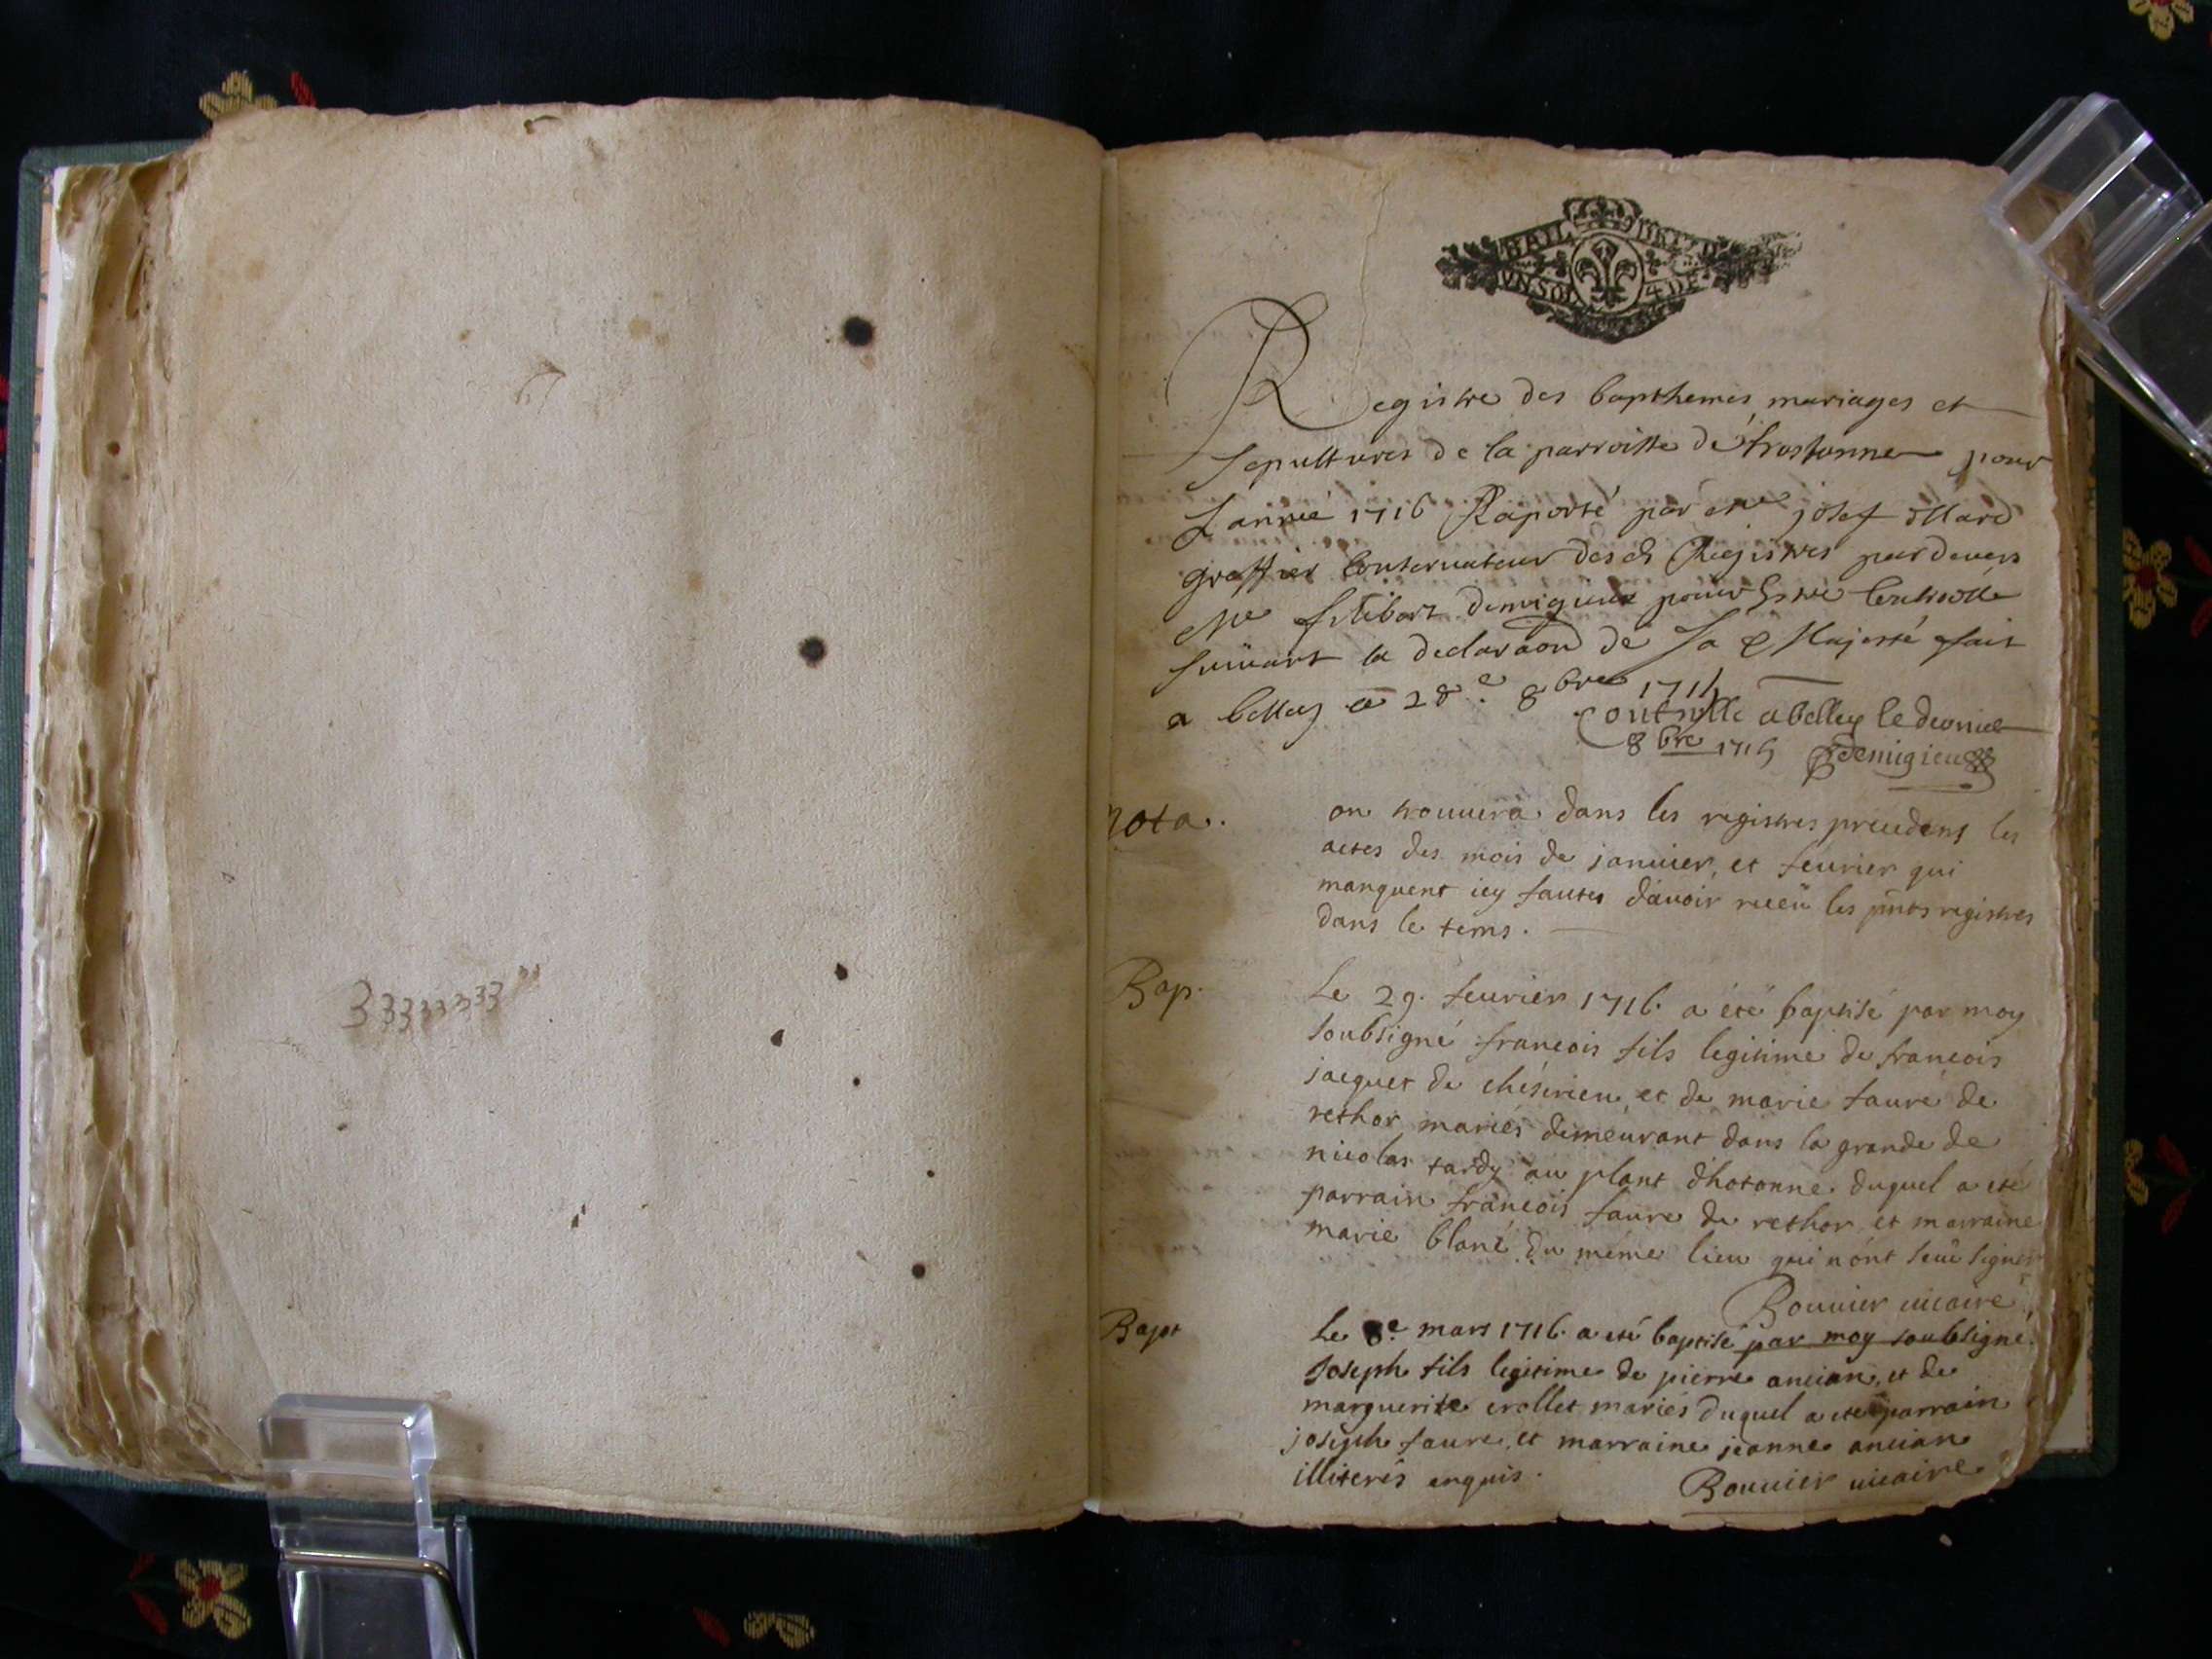 33333333
UNSOL 4 DE
Registre des bapthemes mariages et
sepultures de la parroisse de pour
Lannee 1716 Raporté par Me josef
greffier conservateur desd Registres pardevers
Me filibert demigieux pour estre
suivant la declaraon de Sa Majesté fait
a belley ce 28e 8bre 1715
Contrelle a belley le
8bre 1715 demigieu
nota.
on trouuera dans les registres precedens les
actes des mois de januier, et feurier qui
manquent icy fautes d'auoir receü les pnts registres
dans le tems.
Bap.
Le 29. feurier 1716. a été baptisé par moy
soubsigné francois fils legitime de francois
jacquet de et de marie faure de
rethor mariés demeurant dans la grande de
nicolas tardy au plant d'hotonne. duquel a eté
parrain francois faure de rethor et marraine
marie blanc du méme lieu qui n'ont seu signer
Bouuier uicaire
Bapt
Le mars 1716. a eté baptisé par moy soubsigné
Joseph fils legitime de pierre ancian, et de
marguerite crollet mariés duquel a eté parrain
joseph faure, et marraine jeanne ancian
illiterés enquis.
Bouuier uicaire